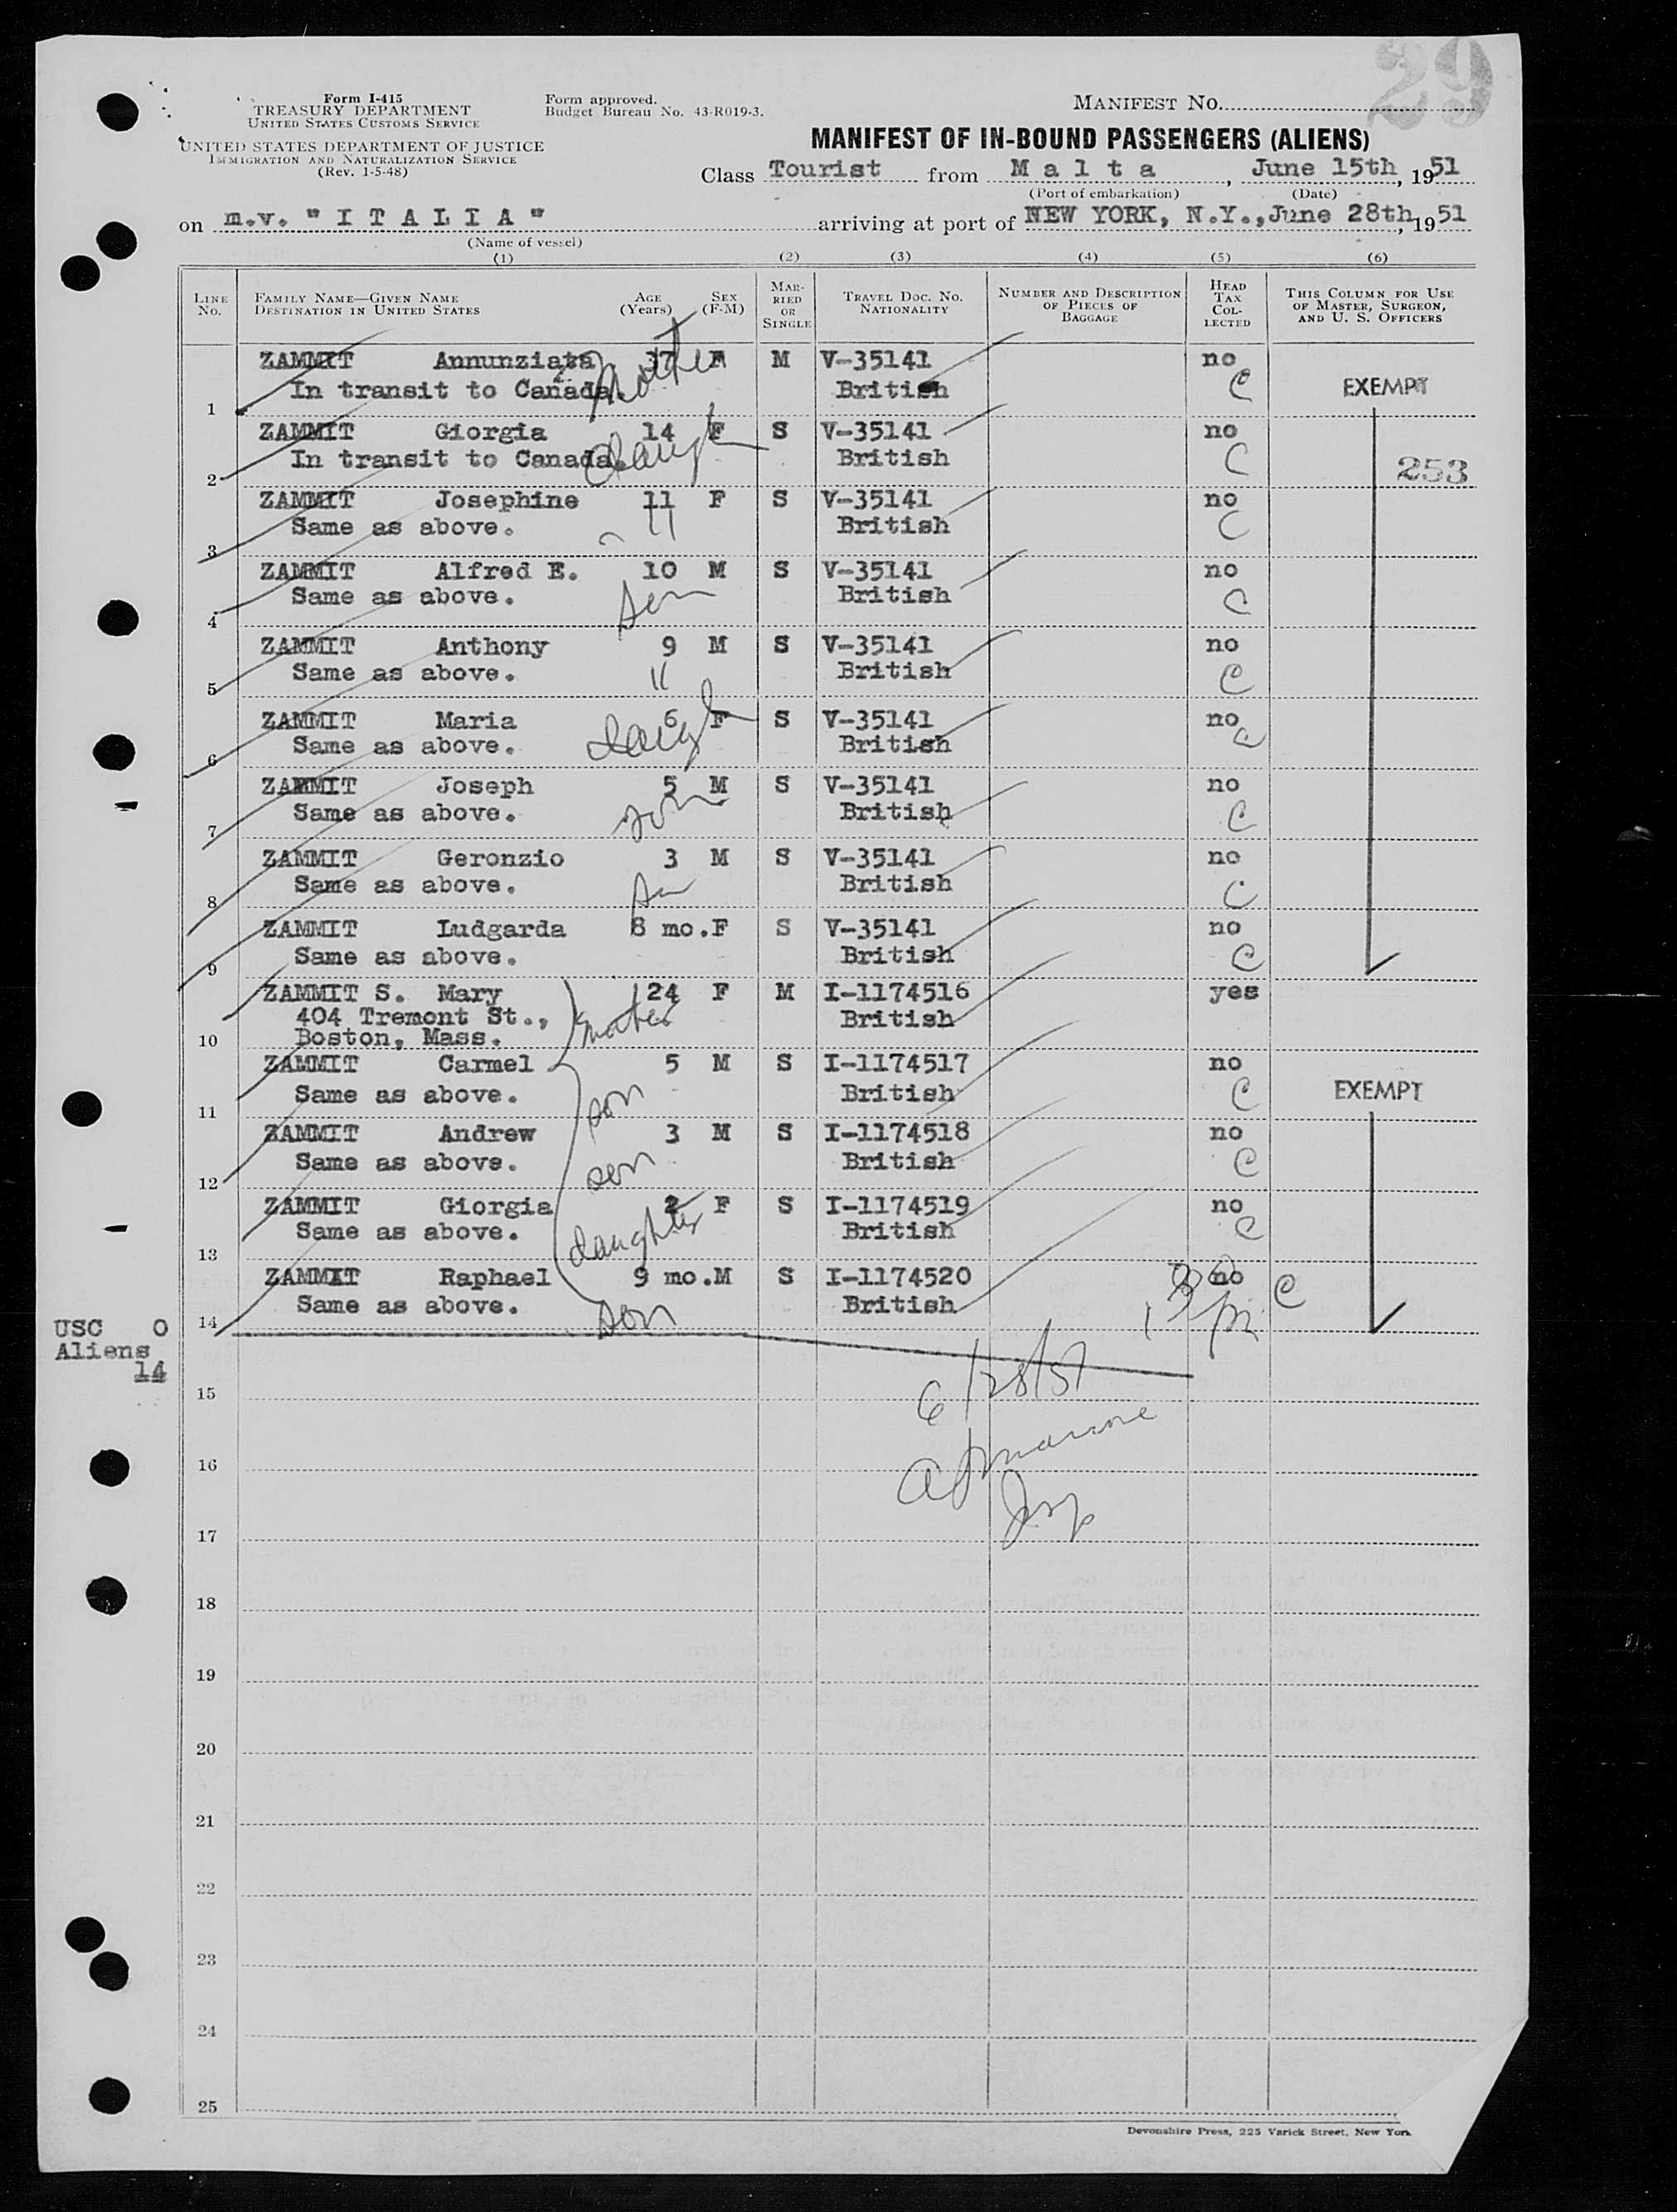 29
Form I-415
TREASURY DEPARTMENT
UNITED STATES CUSTOMS SERVICE
UNITED STATES DEPARTMENT OF JUSTICE
IMMIGRATION AND NATURALIZATION SERVICE
(Rev. 1-5-48)
Form approved.
Budget Bureau No. 43-R019-3.
MANIFEST NO.
MANIFEST OF IN-BOUND PASSENGERS (ALIENS)
Class Tourist from Malta, June 15th, 1951
(Port of embarkation) (Date)
on m.v. "ITALIA" arriving at port of NEW YORK, N.Y., June 28th, 1951
(Name of vessel)
(1) (2) (3) (4) (5) (6)
LINE NO. FAMILY NAME—GIVEN NAME DESTINATION IN UNITED STATES AGE (Years) SEX (F-M) MARRIED OR SINGLE TRAVEL DOC. NO. NATIONALITY NUMBER AND DESCRIPTION OF PIECES OF BAGGAGE HEAD TAX COLLECTED THIS COLUMN FOR USE OF MASTER, SURGEON, AND U. S. OFFICERS
ZAMMIT Annunziata 37 F M V-35141 no
1 In transit to Canada. Mother British C EXEMPT
ZAMMIT Giorgia 14 F S V-35141 no
2 In transit to Canada. daugh British C 253
ZAMMIT Josephine 11 F S V-35141 no
3 Same as above. " British C
ZAMMIT Alfred E. 10 M S V-35141 no
4 Same as above. son British C
ZAMMIT Anthony 9 M S V-35141 no
5 Same as above. " British C
ZAMMIT Maria 6 F S V-35141 no
6 Same as above. daugh British C
ZAMMIT Joseph 5 M S V-35141 no
7 Same as above. son British C
ZAMMIT Geronzio 3 M S V-35141 no
8 Same as above. son British C
ZAMMIT Ludgarda 8 mo. F S V-35141 no
9 Same as above. British C
ZAMMIT S. Mary 24 F M I-1174516 yes
404 Tremont St., mother British
10 Boston, Mass.
ZAMMIT Carmel 5 M S I-1174517 no
11 Same as above. son British C EXEMPT
ZAMMIT Andrew 3 M S I-1174518 no
12 Same as above. son British C
ZAMMIT Giorgia 2 F S I-1174519 no
13 Same as above. daughter British C
ZAMMIT Raphael 9 mo. M S I-1174520 no C
14 Same as above. son British
USC 0
Aliens
14
6/28/51
15
16
Insp
17
18
19
20
21
22
23
24
25
Devonshire Press, 225 Varick Street, New York